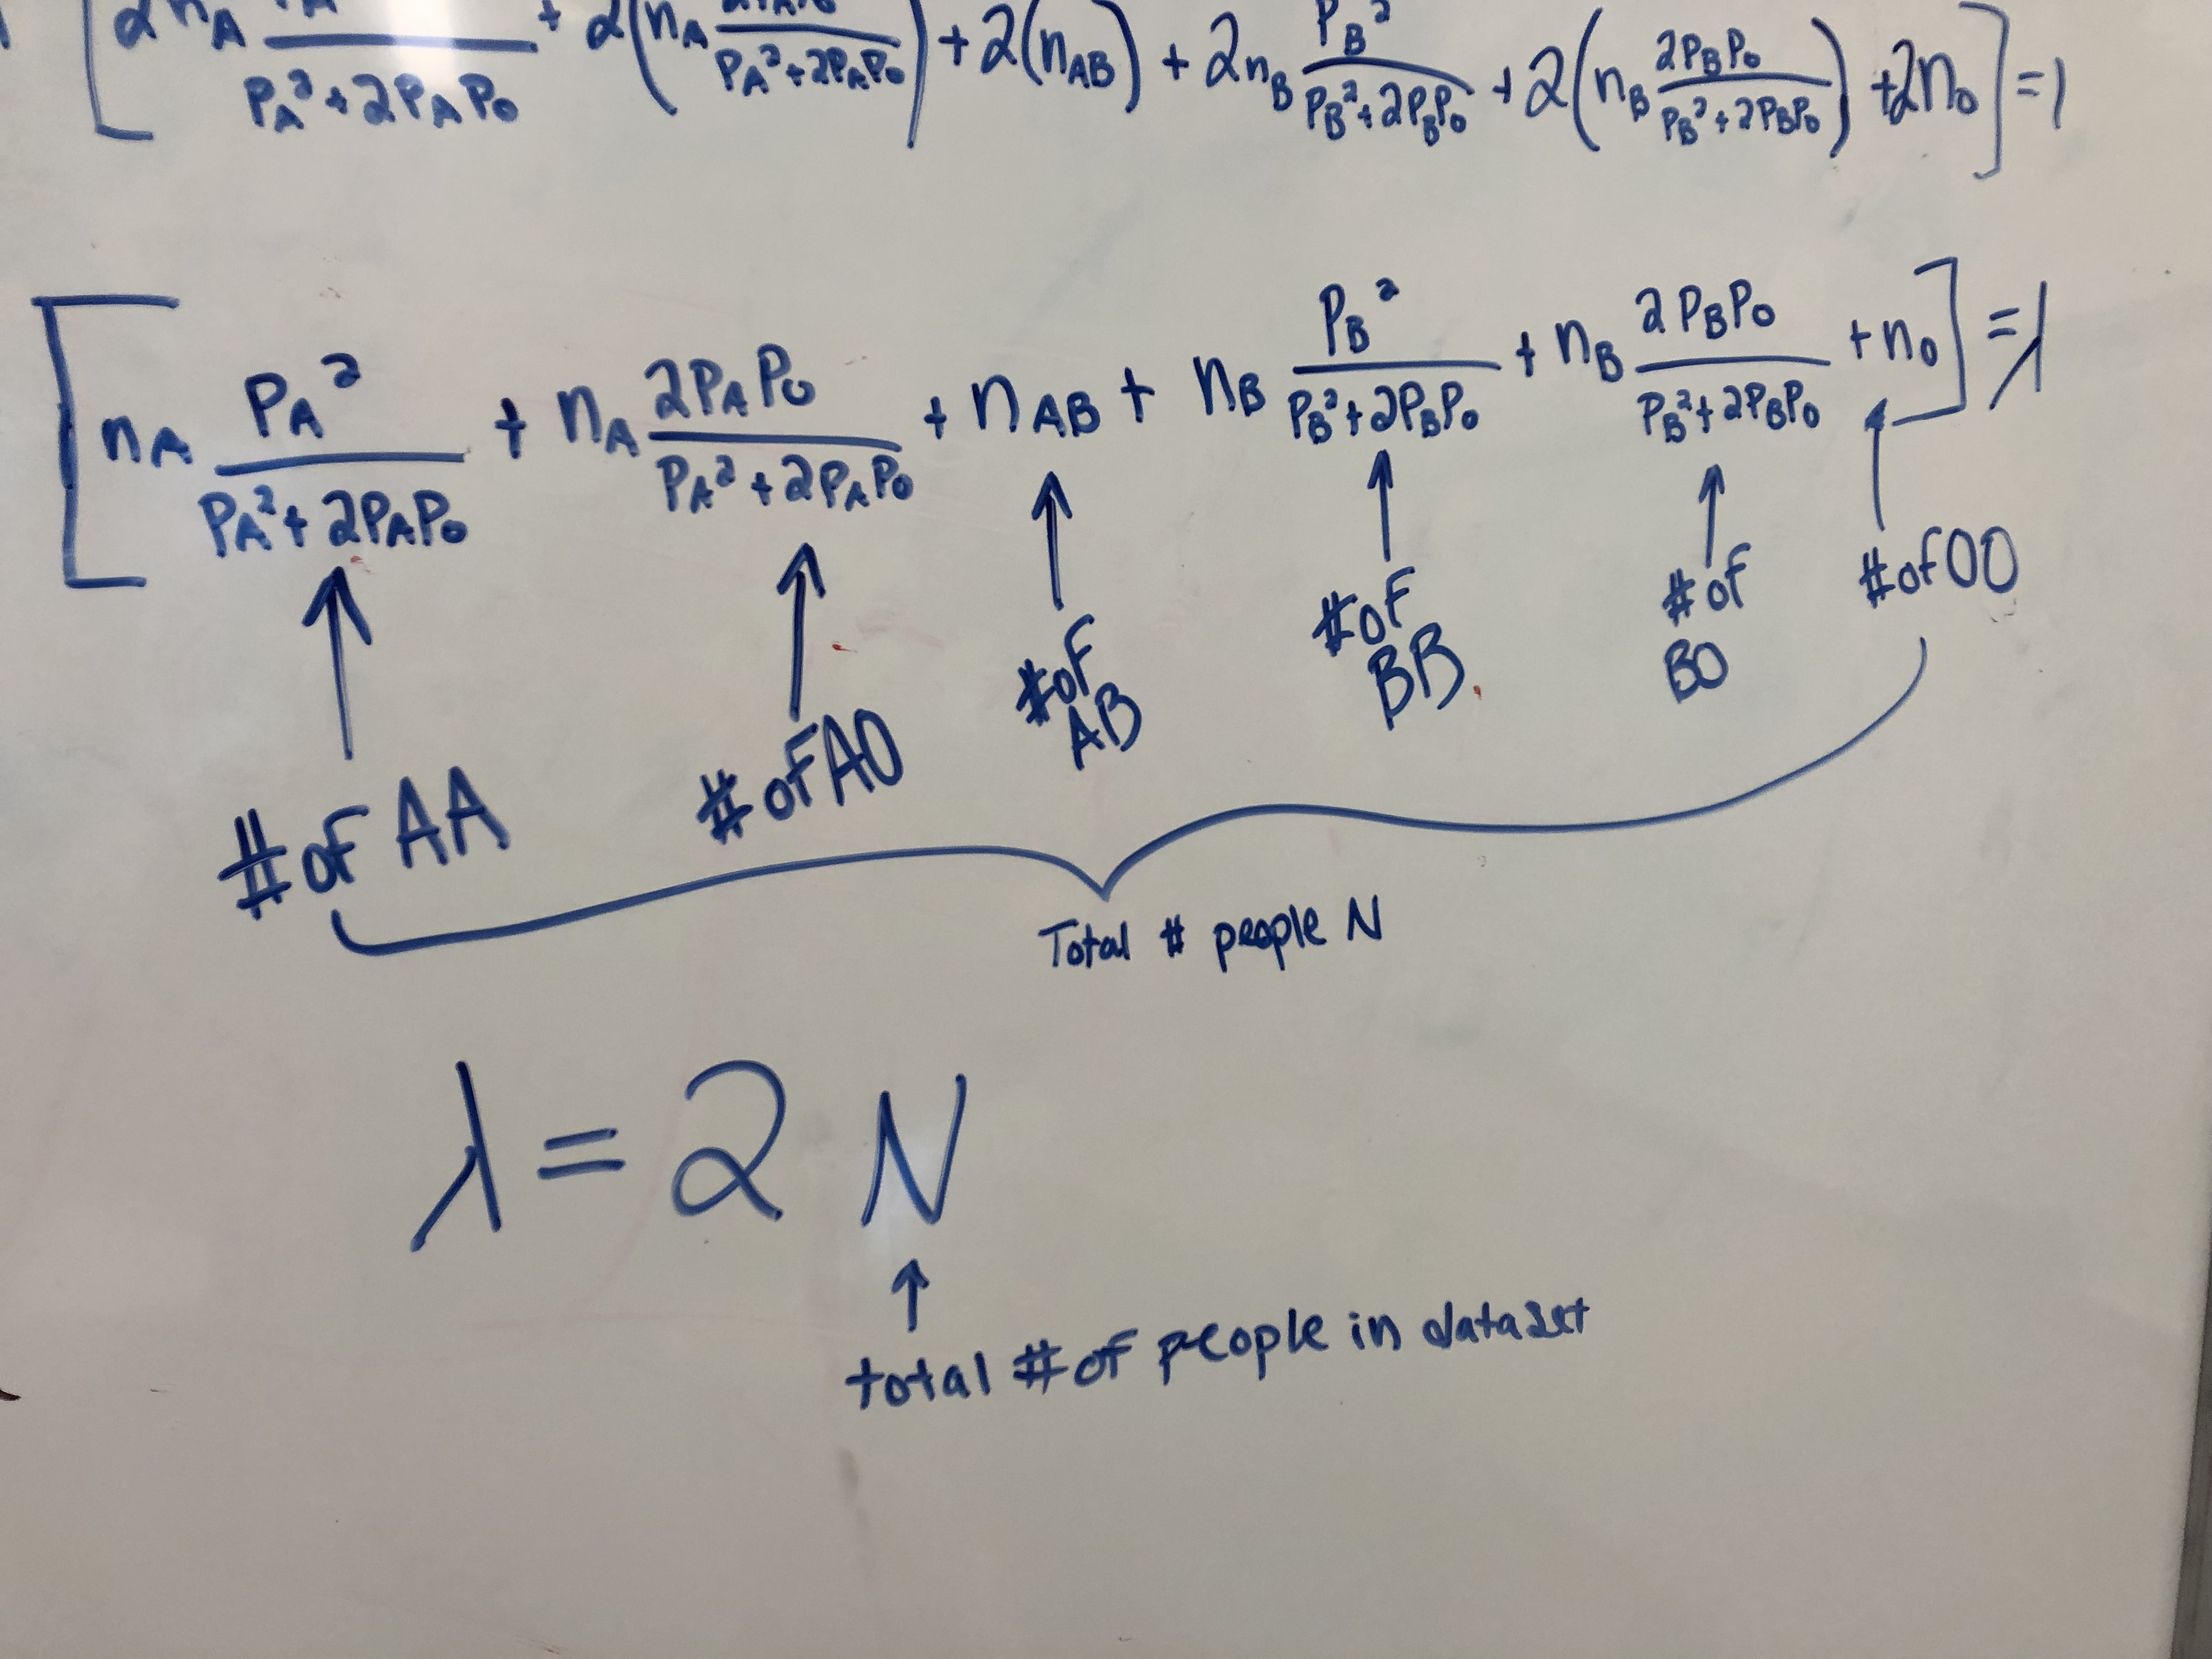 [2n_A ‾/(P_A² + 2P_AP_O) + 2(n_A 2P_AP_O/(P_A² + 2P_AP_O)) + 2(n_AB) + 2n_B P_B²/(P_B² + 2P_BP_O) + 2(n_B 2P_BP_O/(P_B² + 2P_BP_O)) + 2n_O] = 1
[n_A P_A²/(P_A² + 2P_AP_O) + n_A 2P_AP_O/(P_A² + 2P_AP_O) + n_AB + n_B P_B²/(P_B² + 2P_BP_O) + n_B 2P_BP_O/(P_B² + 2P_BP_O) + n_O] = λ
↑ ↑ ↑ ↑ ↑ ↑
# of AA
# of AO
# of
AB
# of
BB
# of
BO
# of OO
Total # people N
λ = 2 N
↑
total # of people in dataset